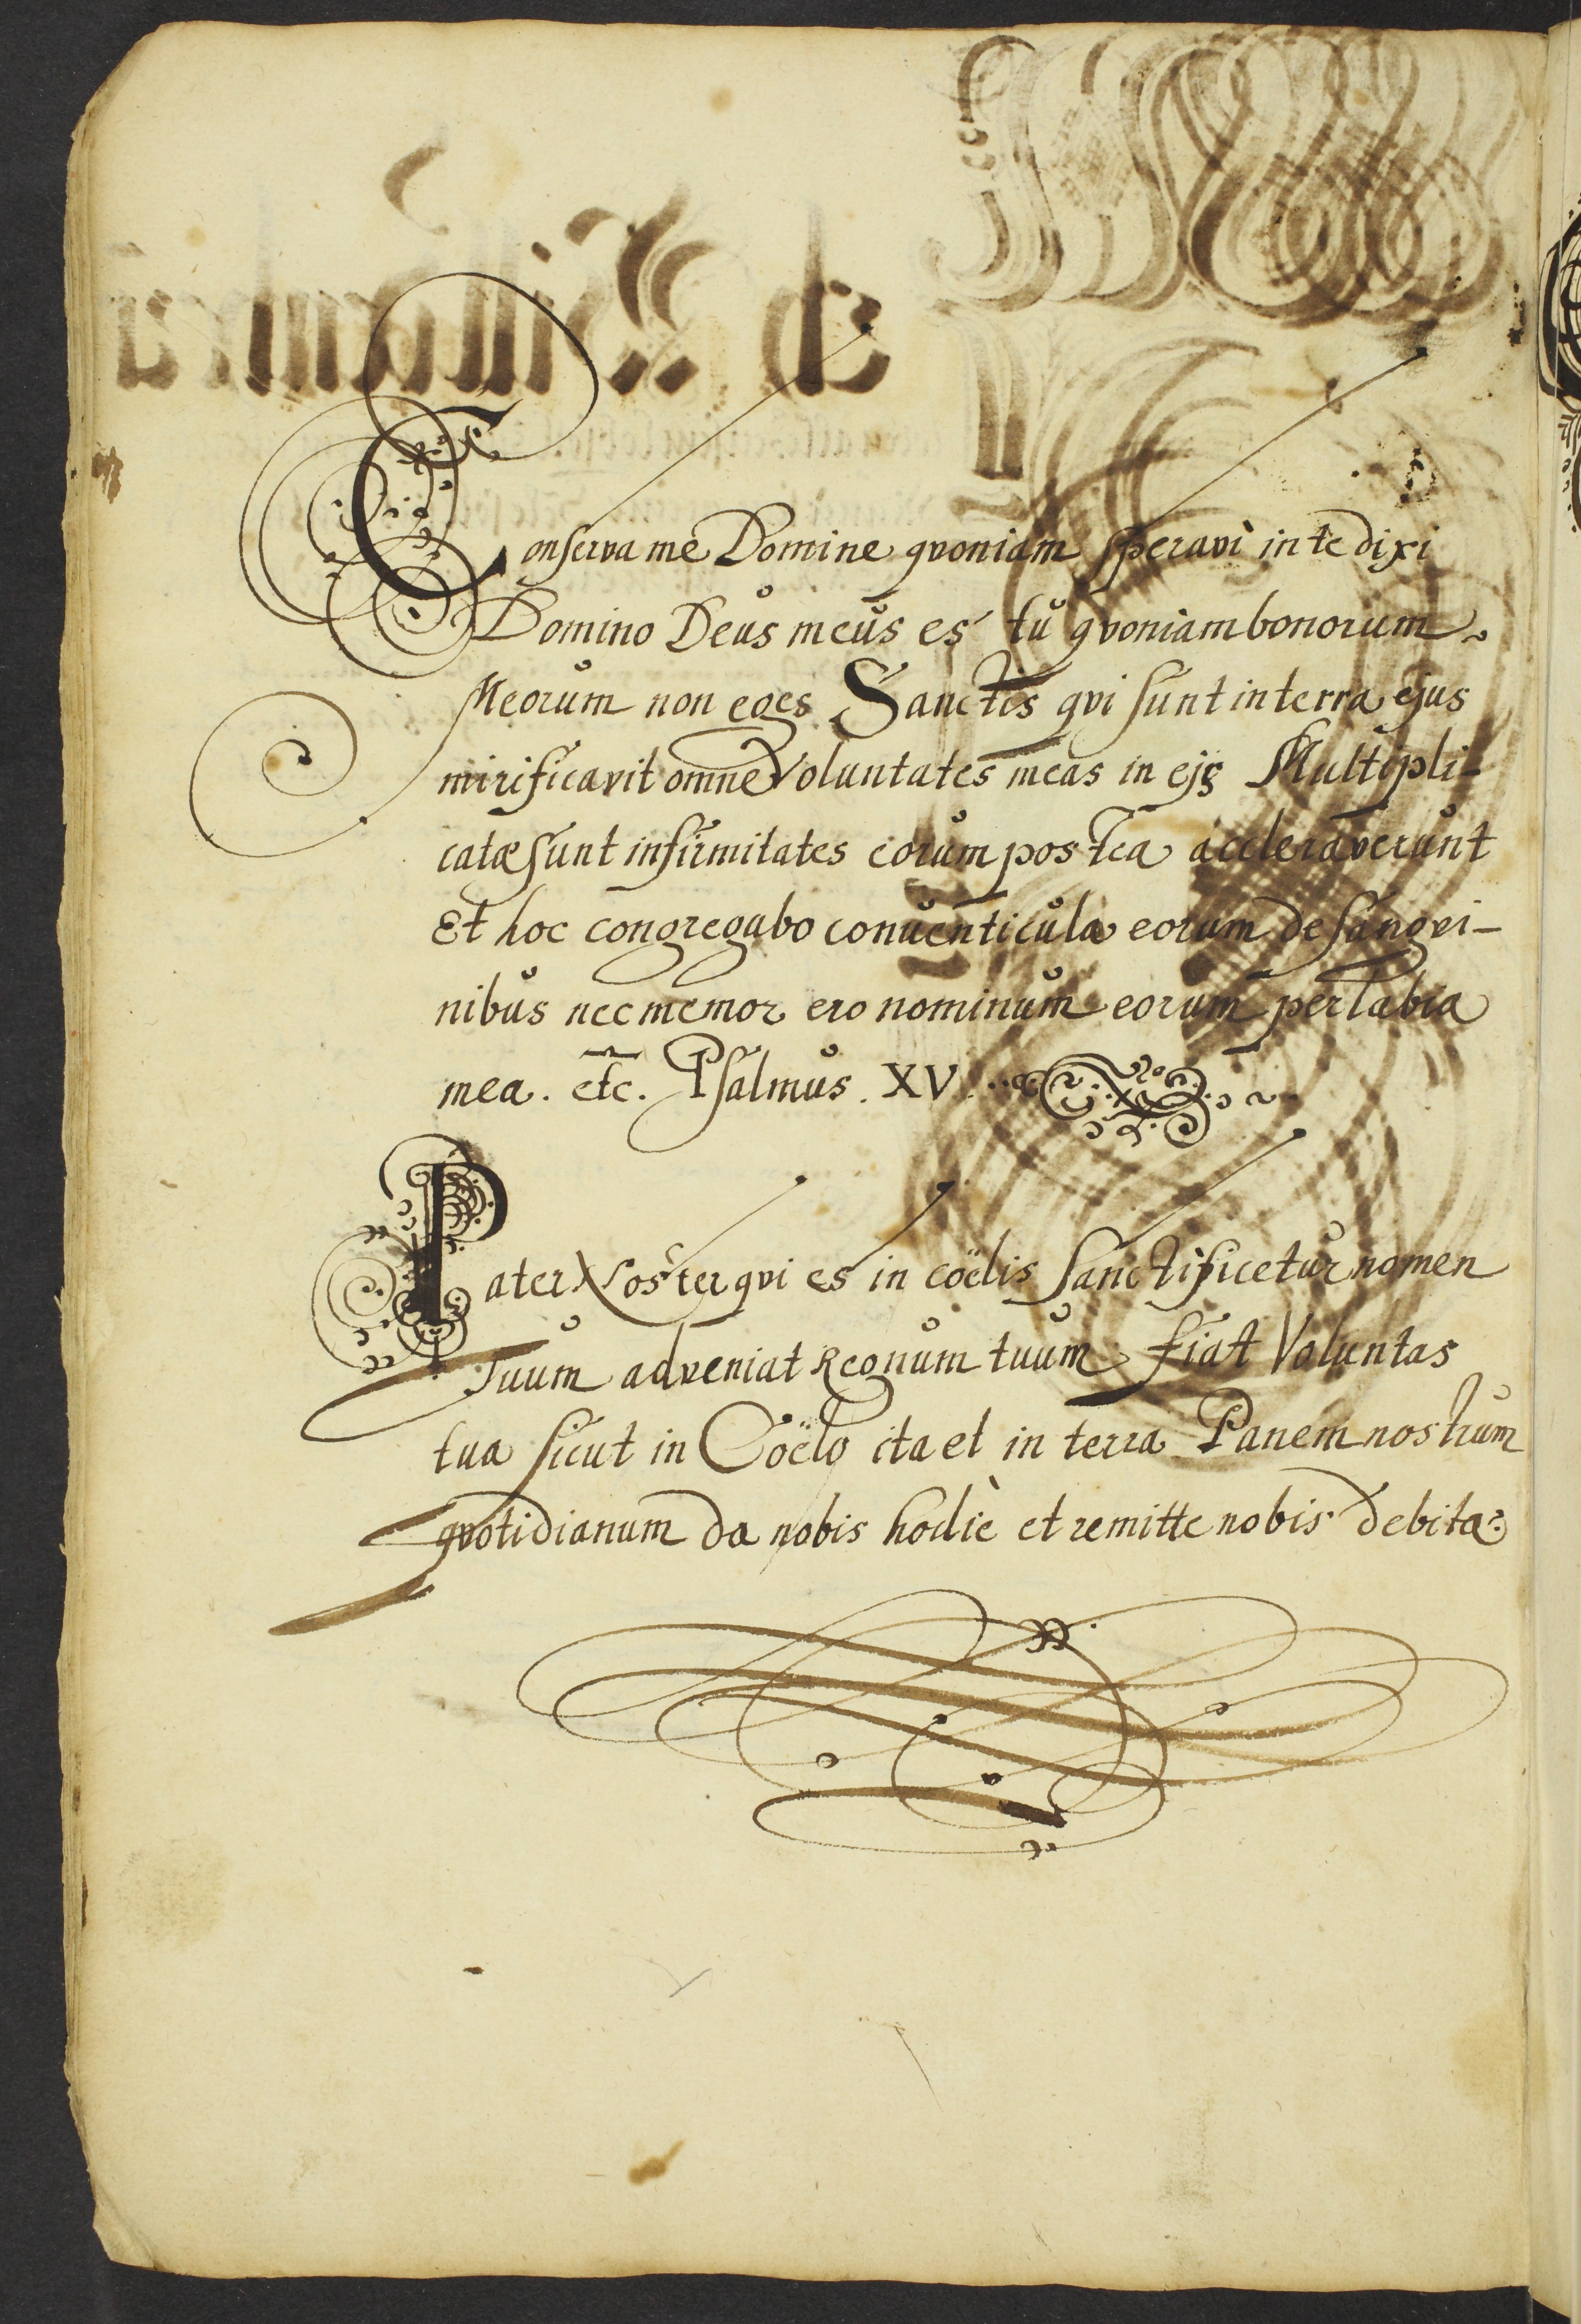 Conserva me Domine qvoniam speravi in te dixi
Domino Deus meus es tu qvoniam bonorum
Meorum non eges Sanctis qvi sunt in terra ejus
mirificavit omne Voluntates meas in ejs Multipli-
catæ sunt infirmitates eorum postea acceleraverunt
Et hoc congregabo conventicula eorum de sangvi-
nibus nec memor ero nominum eorum per labia
mea. etc. Psalmus. XV.
Pater Noster qvi es in cöelis Sanctificetur nomen
Tuum adveniat Regnum tuum fiat Voluntas
tua sicut in Cöelo ita et in terra Panem nostrum
qvotidianum da nobis hodiè et remitte nobis debita